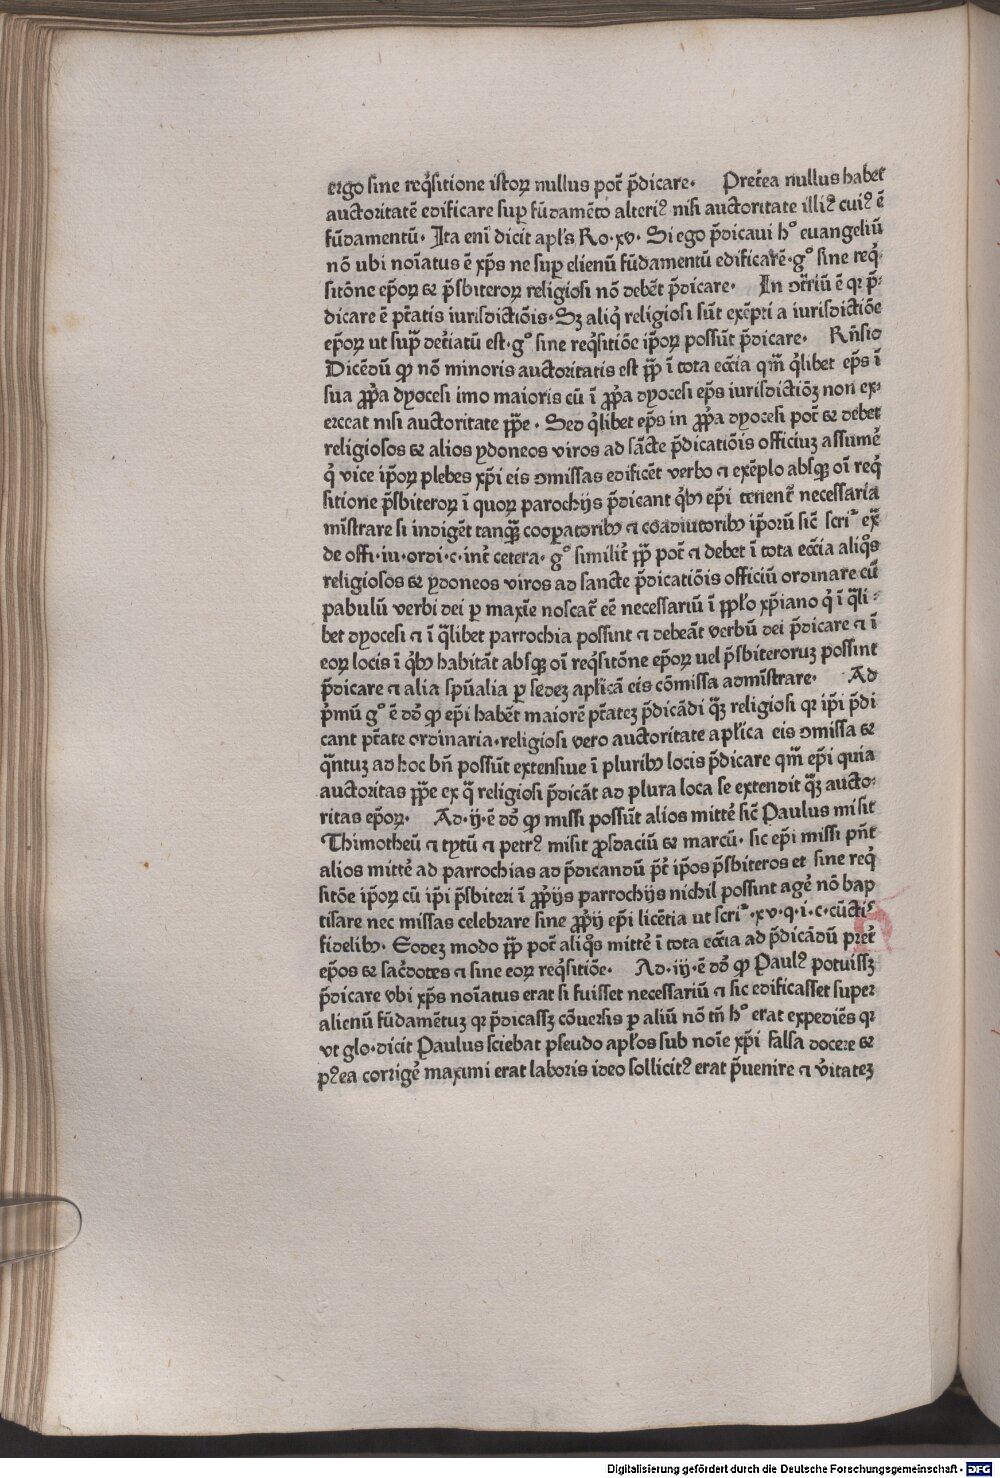 ergo sine req̇sitione istoꝝ nullus pot̄ p̄dicare· Pret̄ea nullus habet
auctoritatē edificare suꝑ fūdamēto alteriꝰ nisi auctoritate illiꝰ cuiꝰ ē
fūdamentū· Ita enī dicit apl̄s Ro·xv· Si ego p̄dicaui hͦ euangeliū
nō ubi noīatus ē xp̄s ne suꝑ elienū fūdamentū edificarē·gͦ sine req̇·
sitōne ep̄oꝝ ⁊ p̄sbiteroꝝ religiosi nō debēt p̄dicare· In ↄt̄riū ē qꝛ p̄·
dicare ē pt̄atis iurisdictiōis·Sꝫ aliq̇ religiosi sūt exēpti a iurisdictiōe
ep̄oꝝ ut sup̄ det̄iatū est·gͦ sine reqs̄itiōe ip̄oꝝ possūt p̄dicare· Rn̄sio
Dicēdū ꝙ nō minoris auctoritatis est pp̄ ī tota ecc̄ia qm̄ q̇libet ep̄s ī
sua ꝓpa dyocesi imo maioris cū ī ꝓpa dyocesi ep̄s iurisdictiōꝫ non ex·
erceat nisi auctoritate pp̄e · Sed q̇libet ep̄s in ꝓpa dyocesi pot̄ ⁊ debet
religiosos ⁊ alios ydoneos viros ad sācte p̄dicatiōis officiuꝫ assumē
q̇ vice ip̄oꝝ plebes xp̄i eis ↄmissas edificēt verbo ⁊ exēplo absqꝫ oī req̇
sitione p̄sbiteroꝝ ī quoꝝ parochijs p̄dicant q̇bꝫ ep̄i tenent̄ necessaria
mīstrare si indigēt tanqꝫ̄ coopatoribꝫ ⁊ coadiutoribꝫ ip̄orū sic̄ scri̓ ex̄
de offi·iu·ordi·c·int̄ cetera· gͦ similit̄ pp̄ pot̄ ⁊ debet ī tota ecc̄ia aliq̇s
religiosos ⁊ ydoneos viros ad sancte p̄dicatiōis officiū ordinare cū
pabulū verbi dei ꝑ maxīe noscat̄ eē necessariū ī ppl̄o xp̄iano q̇ ī q̄li·
bet dyocesi ⁊ ī q̄libet parrochia possint ⁊ debeāt verbū dei p̄dicare ⁊ ī
eoꝝ locis ī q̇bꝫ habitāt absqꝫ oī req̇sitōne ep̄oꝝ uel p̄sbiteroruꝫ possint
p̄dicare ⁊ alia spūalia ꝑ sedeꝫ apl̄icā eis cōmissa admīstrare· Ad
p̄mū gͦ ē dd̄ ꝙ ep̄i habēt maiorē pt̄ateꝫ p̄dicādi qꝫ̄ religiosi qꝛ ip̄i p̄di
cant pt̄ate ordinaria·religiosi vero auctoritate apl̄ica eis ↄmissa ⁊
q̄ntuꝫ ad hoc bn̄ possūt extensiue ī pluribꝫ locis p̄dicare qm̄ ep̄i quia
auctoritas pp̄e ex q̄ religiosi p̄dicāt ad plura loca se extendit qꝫ̄ aucto·
ritas ep̄oꝝ· Ad·ij·ē dd̄ ꝙ missi possūt alios mittē sic̄ Paulus misit
Thimotheū ⁊ tytū ⁊ petrꝰ misit ꝓsdaciū ⁊ marcū· sic ep̄i missi pn̄t
alios mittē ad parrochias ad p̄dicandū p̄t̄ ip̄os p̄sbiteros et sine req̇
sitōe ip̄oꝝ cū ip̄i p̄sbiteri ī ꝓpijs parrochijs nichil possint agē nō bap
tisare nec missas celebrare sine ꝓpij ep̄i licētia ut scri̓·xv·q·i·c·cūctiˢ
fidelibꝫ· Eodeꝫ modo pp̄ pot̄ aliq̇s mittē ī tota ecc̄ia ad p̄dicādū pret̄
ep̄os ⁊ sac̄dotes ⁊ sine eoꝝ req̇sitiōe· Ad·iij·ē dd̄ ꝙ Paulꝰ potuissꝫ
p̄dicare vbi xp̄s noīatus erat si fuisset necessariū ⁊ sic edificasset super
alienū fūdamētuꝫ qꝛ p̄dicassꝫ cōuersis ꝑ aliū nō tn̄ hͦ erat expediēs qꝛ
vt glo·dicit Paulus sciebat pseudo apl̄os sub noīe xp̄i falsa docere ⁊
pꝰea corrigē maximi erat laboris ideo sollicitꝰ erat p̄uenire ⁊ v̄itateꝫ
Digitalisierung gefördert durch die Deutsche Forschungsgemeinschaft - DFG